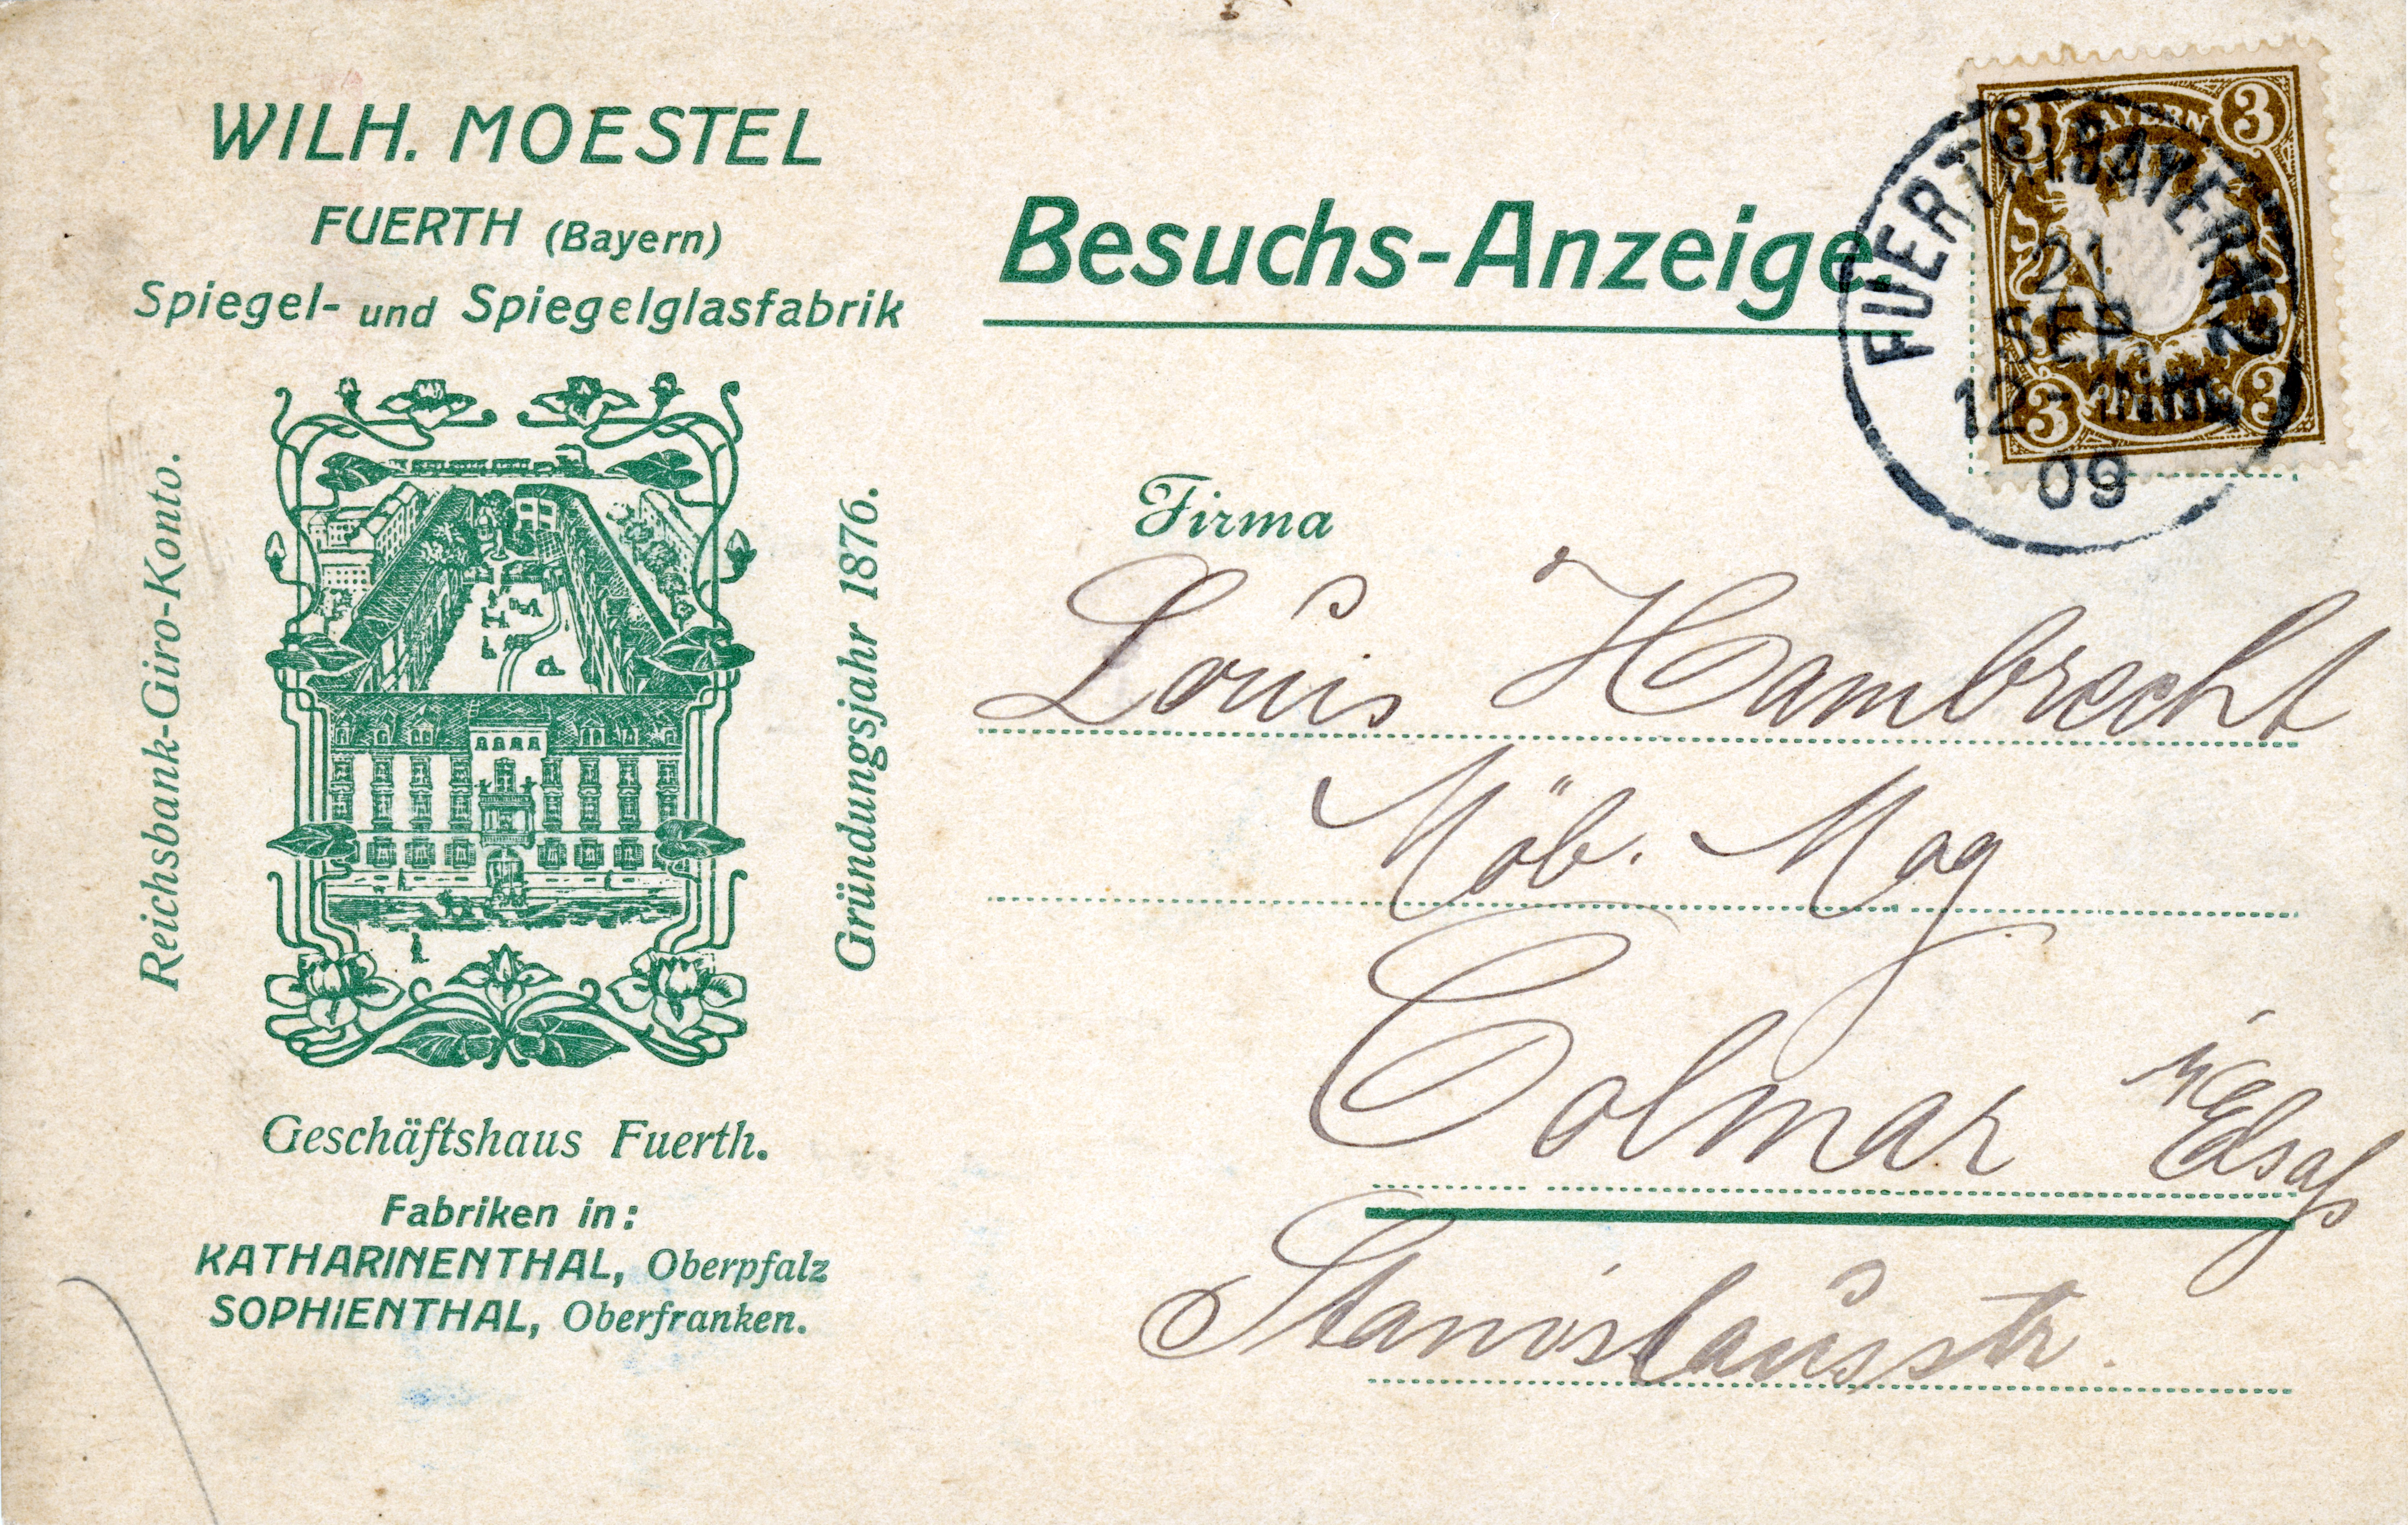 WILH. MOESTEL
FUERTH (Bayern)
Spiegel- und Spiegelglasfabrik
Reichsbank-Giro-Konto.
Gründungsjahr 1876.
Geschäftshaus Fuerth.
Fabriken in:
KATHARINENTHAL, Oberpfalz
SOPHIENTHAL, Oberfranken.
Besuchs-Anzeige.
3 BAYERN 3
3 3
FUERTH(BAYERN) 2
21
SEP.
12-
09
Firma
Louis Hambrecht
Möb. Mag
Colmar i/Elsaß
Stanislausstr.